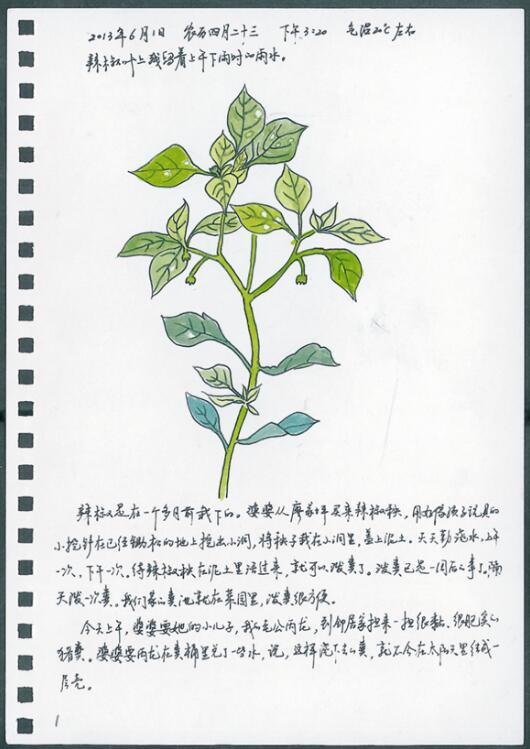 2013年6月1日 农历四月二十三 下午3:20 气温20℃左右
辣椒叶上残留着上午下雨时的雨水。
辣椒是在一个多月前栽下的。婆婆从廖家坪买来辣椒秧，用
小挖针在已经锄松的地上挖出小洞，将秧子栽在小洞里，盖上泥土。天天勤浇水，上午
一次，下午一次。待辣椒秧在泥土里活过来，就可以泼粪了。泼粪已是一周后的事了。隔
天泼一次粪。我们家的粪池就在菜园里，泼粪很方便。
今天上午，婆婆要她的小儿子，我的老公丙龙，到邻居家担来一担很黏、很肥的
猪粪。婆婆要丙龙在粪桶里兑了一些水，说，这样浇下去的粪，就不会在太阳天里结成一
层壳。
1